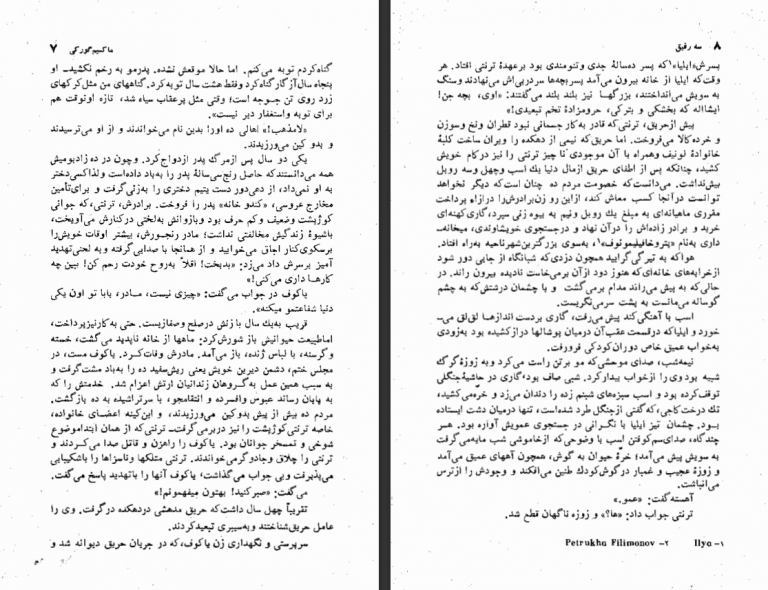 ماکسیم‌گورکی ۷
گناه‌کردم توبه می‌کنم. اما حالا موقعش نشده. پدرمو به رخم نکشید- او
پنجاه سال‌آزگار گناه‌کرد وفقط هشت سال توبه‌کرد. گناههای من مثل‌کرکهای
زرد روی تن جوجه است؛ وقتی مثل پرعقاب سیاه شد، تازه اونوقت هم
برای توبه واستغفار دیر نیست.»
«لامذهب!» اهالی ده اورا بدین نام می‌خواندند و از او می‌ترسیدند
و بدو کین می‌ورزیدند.
یکی دو سال پس ازمرگ پدر ازدواج‌کرد. وچون در ده زادبومیش
همه می‌دانستندکه حاصل رنج‌سی‌سالهٔ پدر را به‌باد داده‌است ولذاکسی‌دختر
به او نمی‌داد، از دهی‌دور دست یتیم دختری را به‌زنی‌گرفت و برای‌تأمین
مخارج عروسی، «کندو خانه» پدر را فروخت. برادرش، ترنتی، که جوانی
کوژپشت وضعیف وکم حرف بود وبازوانش به‌لختی درکنارش می‌آویخت،
باشیوهٔ زندگیش مخالفتی نداشت؛ مادر رنجورش، بیشتر اوقات خویش‌را
برسکوی‌کنار اجاق می‌خوابید و از همانجا با صدایی‌گرفته و به لحنی‌تهدید
آمیز برسرش داد می‌زد: «بدبخت! اقلاً به‌روح خودت رحم کن! ببین چه
کارها داری می‌کنی!»
یاکوف در جواب می‌گفت: «چیزی نیست، مــادر، بابا تو اون یکی
دنیا شفاعتمو میکنه».
قریب به‌یك سال با زنش درصلح وصفازیست. حتی به‌کارنیزپرداخت،
اماطبیعت حیوانیش باز شورش‌کرد: ماهها از خانه ناپدید می‌گشت، خسته
وگرسنه، با لباس ژنده، باز می‌آمد. مادرش وفات‌کـرد. یاکوف مست، در
مجلس ختم، دشمن دیرین خویش یعنی ریش‌سفید ده را به‌باد مشت‌گرفت و
به سبب همین عمل به‌گروهان زندانیان ارتش اعزام شد. خدمتش را که
به پایان رساند عبوس وافسرده و انتقامجو، با سرتراشیده به ده بازگشت.
مردم ده بیش از پیش بدوکین می‌ورزیدند، و این‌کینه اعضـای خانواده،
خاصه ترنتی‌کوژپشت را نیز دربرمی‌گرفت- ترنتی‌که از همان ابتداموضوع
شوخی و تمسخر جوانان بود. یاکوف را راهزن و قاتل صدا می‌کـردند و
ترنتی را چلاق وجادوگر می‌خواندند. ترنتی متلکها وناسزاها را باشکیبایی
می‌پذیرفت وبی جواب می‌گذاشت، یاکوف آنها را باتهدید پاسخ می‌گفت.
می‌گفت: «صبرکنید! بهتون میفهمونم!»
تقریباً چهل سال داشت‌که حریق مدهشی دردهکده درگرفت. وی را
عامل حریق‌شناختند وبه‌سیبری تبعیدکردند.
سرپرستی و نگهداری زن یاکوف، که در جریان حریق دیوانه شد و
۸ سه رفیق
پسرش«ایلیا»۱ که پسر ده‌سالهٔ جدی وتنومندی بود برعهدهٔ ترنتی افتاد. هر
وقت‌که ایلیا از خانه بیرون می‌آمد پسربچه‌ها سردرپی‌اش می‌نهادند وسنگ
به سویش می‌انداختند، بزرگهـا نیز بلند بلند می‌گفتند: «اوی، بچه جن!
ایشااله که بخشکی و بترکی، حرومزادهٔ تخم تبعیدی!»
پیش ازحریق، ترنتی‌که قادر به‌کار جسمانی نبود قطران ونخ وسوزن
و خرده‌کالا می‌فروخت. اما حریق‌که نیمی از دهکده را ویران ساخت کلبهٔ
خانوادهٔ لونیف وهمراه با آن موجودی‌ناچیز ترنتی را نیز درکام خویش
کشید، چنانکه پس از اطفای حریق ازمال دنیا یك اسب وچهل وسه روبل
بیش‌نداشت. می‌دانست‌که خصومت مردم ده چنان است‌که دیگر نخواهد
توانست درآنجا کسب معاش کند، ازاین رو زن‌برادرش‌را درازاء پرداخت
مقرری ماهیانه‌ای به مبلغ یك روبل ونیم به بیوه زنی سپرد، گاری‌کهنه‌ای
خرید و برادر زاده‌اش را درآن نهاد و درجستجوی خویشاوندی، میخانه-
داری به‌نام «پتروخافیلیمونوف»۲، به‌سوی بزرگترین‌شهرناحیه به‌راه افتاد.
هوا که به تیرگی‌گرایید همچون دزدی‌که شبانگاه از جایی دور شود
ازخرابه‌های خانه‌ای‌که هنوز دود ازآن برمی‌خاست نادیده بیرون راند. در
حالی‌که به پیش می‌راند مدام برمی‌گشت و با چشمان درشتش‌که به چشم
گوساله می‌مانست به پشت سرمی‌نگریست.
اسب با آهنگی‌کند پیش‌می‌رفت، گاری بردست اندازهـا لق‌لق می‌-
خورد و ایلیاکه درقسمت عقب‌آن درمیان پوشالها درازکشیده بود به‌زودی
به‌خواب عمیق خاص دوران‌کودکی فرورفت.
نیمه‌شب، صدای موحشی‌که مو برتن راست می‌کرد وبه زوزهٔ گرگ
شبیه بود وی را ازخواب بیدارکرد. شبی صاف بود،گاری در حاشیهٔ جنگلی
توقف‌کرده بود و اسب سبزه‌های شبنم زده را دندان می‌زد و خرّه‌می‌کشید،
تك درخت‌کاجی، که‌گفتی ازجنگل طرد شده‌است، تنها درمیان دشت ایستاده
بـود. چشمان تیز ایلیا با نگرانی در جستجوی عمویش آواره بود. هـر
چندگاه، صدای‌سم‌کوفتن اسب با وضوحی‌که ازخاموشی شب مایه‌می‌گرفت
به سویش پیش می‌آمد؛ خرّهٔ حیوان به گوش، همچون آههای عمیق می‌آمد
و زوزهٔ عجیب و غمبار درگوش‌کودك طنین می‌افکند و وجودش را ازترس
می‌انباشت.
آهسته گفت: «عمو.»
ترنتی جواب داد: «ها؟» و زوزه ناگهان قطع شد.
۱- Ilya ۲- Petrukha Filimonov